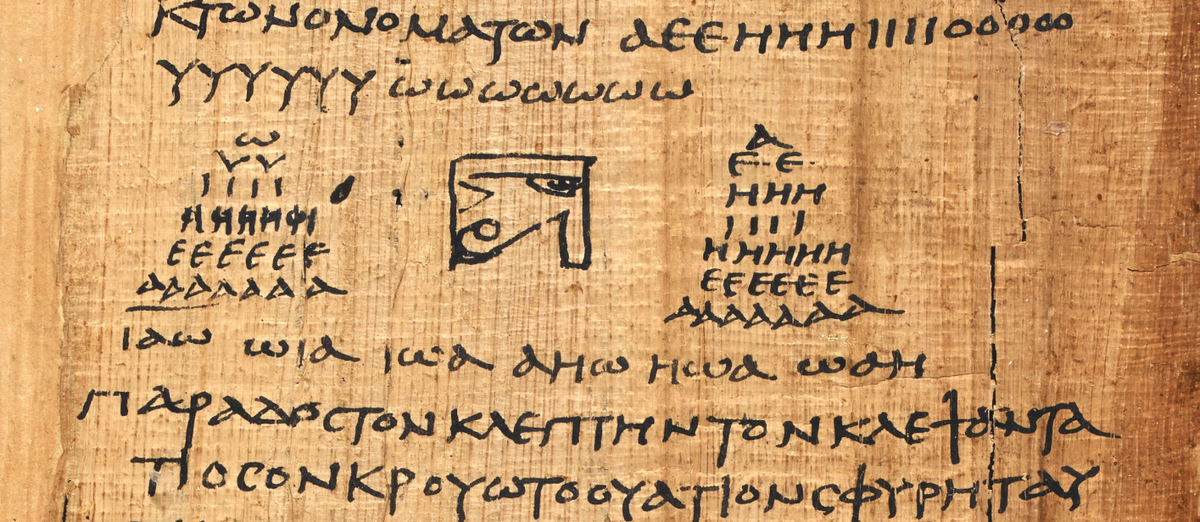 κτωνονοματων αεεηηηιιιιοοοοο
υυυυυυ ωωωωωωω
ω
υυ
ιιιι
ηηηηη
εεεεεε
ααααααα
α
εε
ηηη
ιιιι
ηηηηη
εεεεεε
ααααααα
ιαω ωια ιωα αηω ηωα ωαη
παραδοϲτονκλεπτηντονκλεψοντα
τιοϲονκρουωτοουατιονϲφυρηταυ